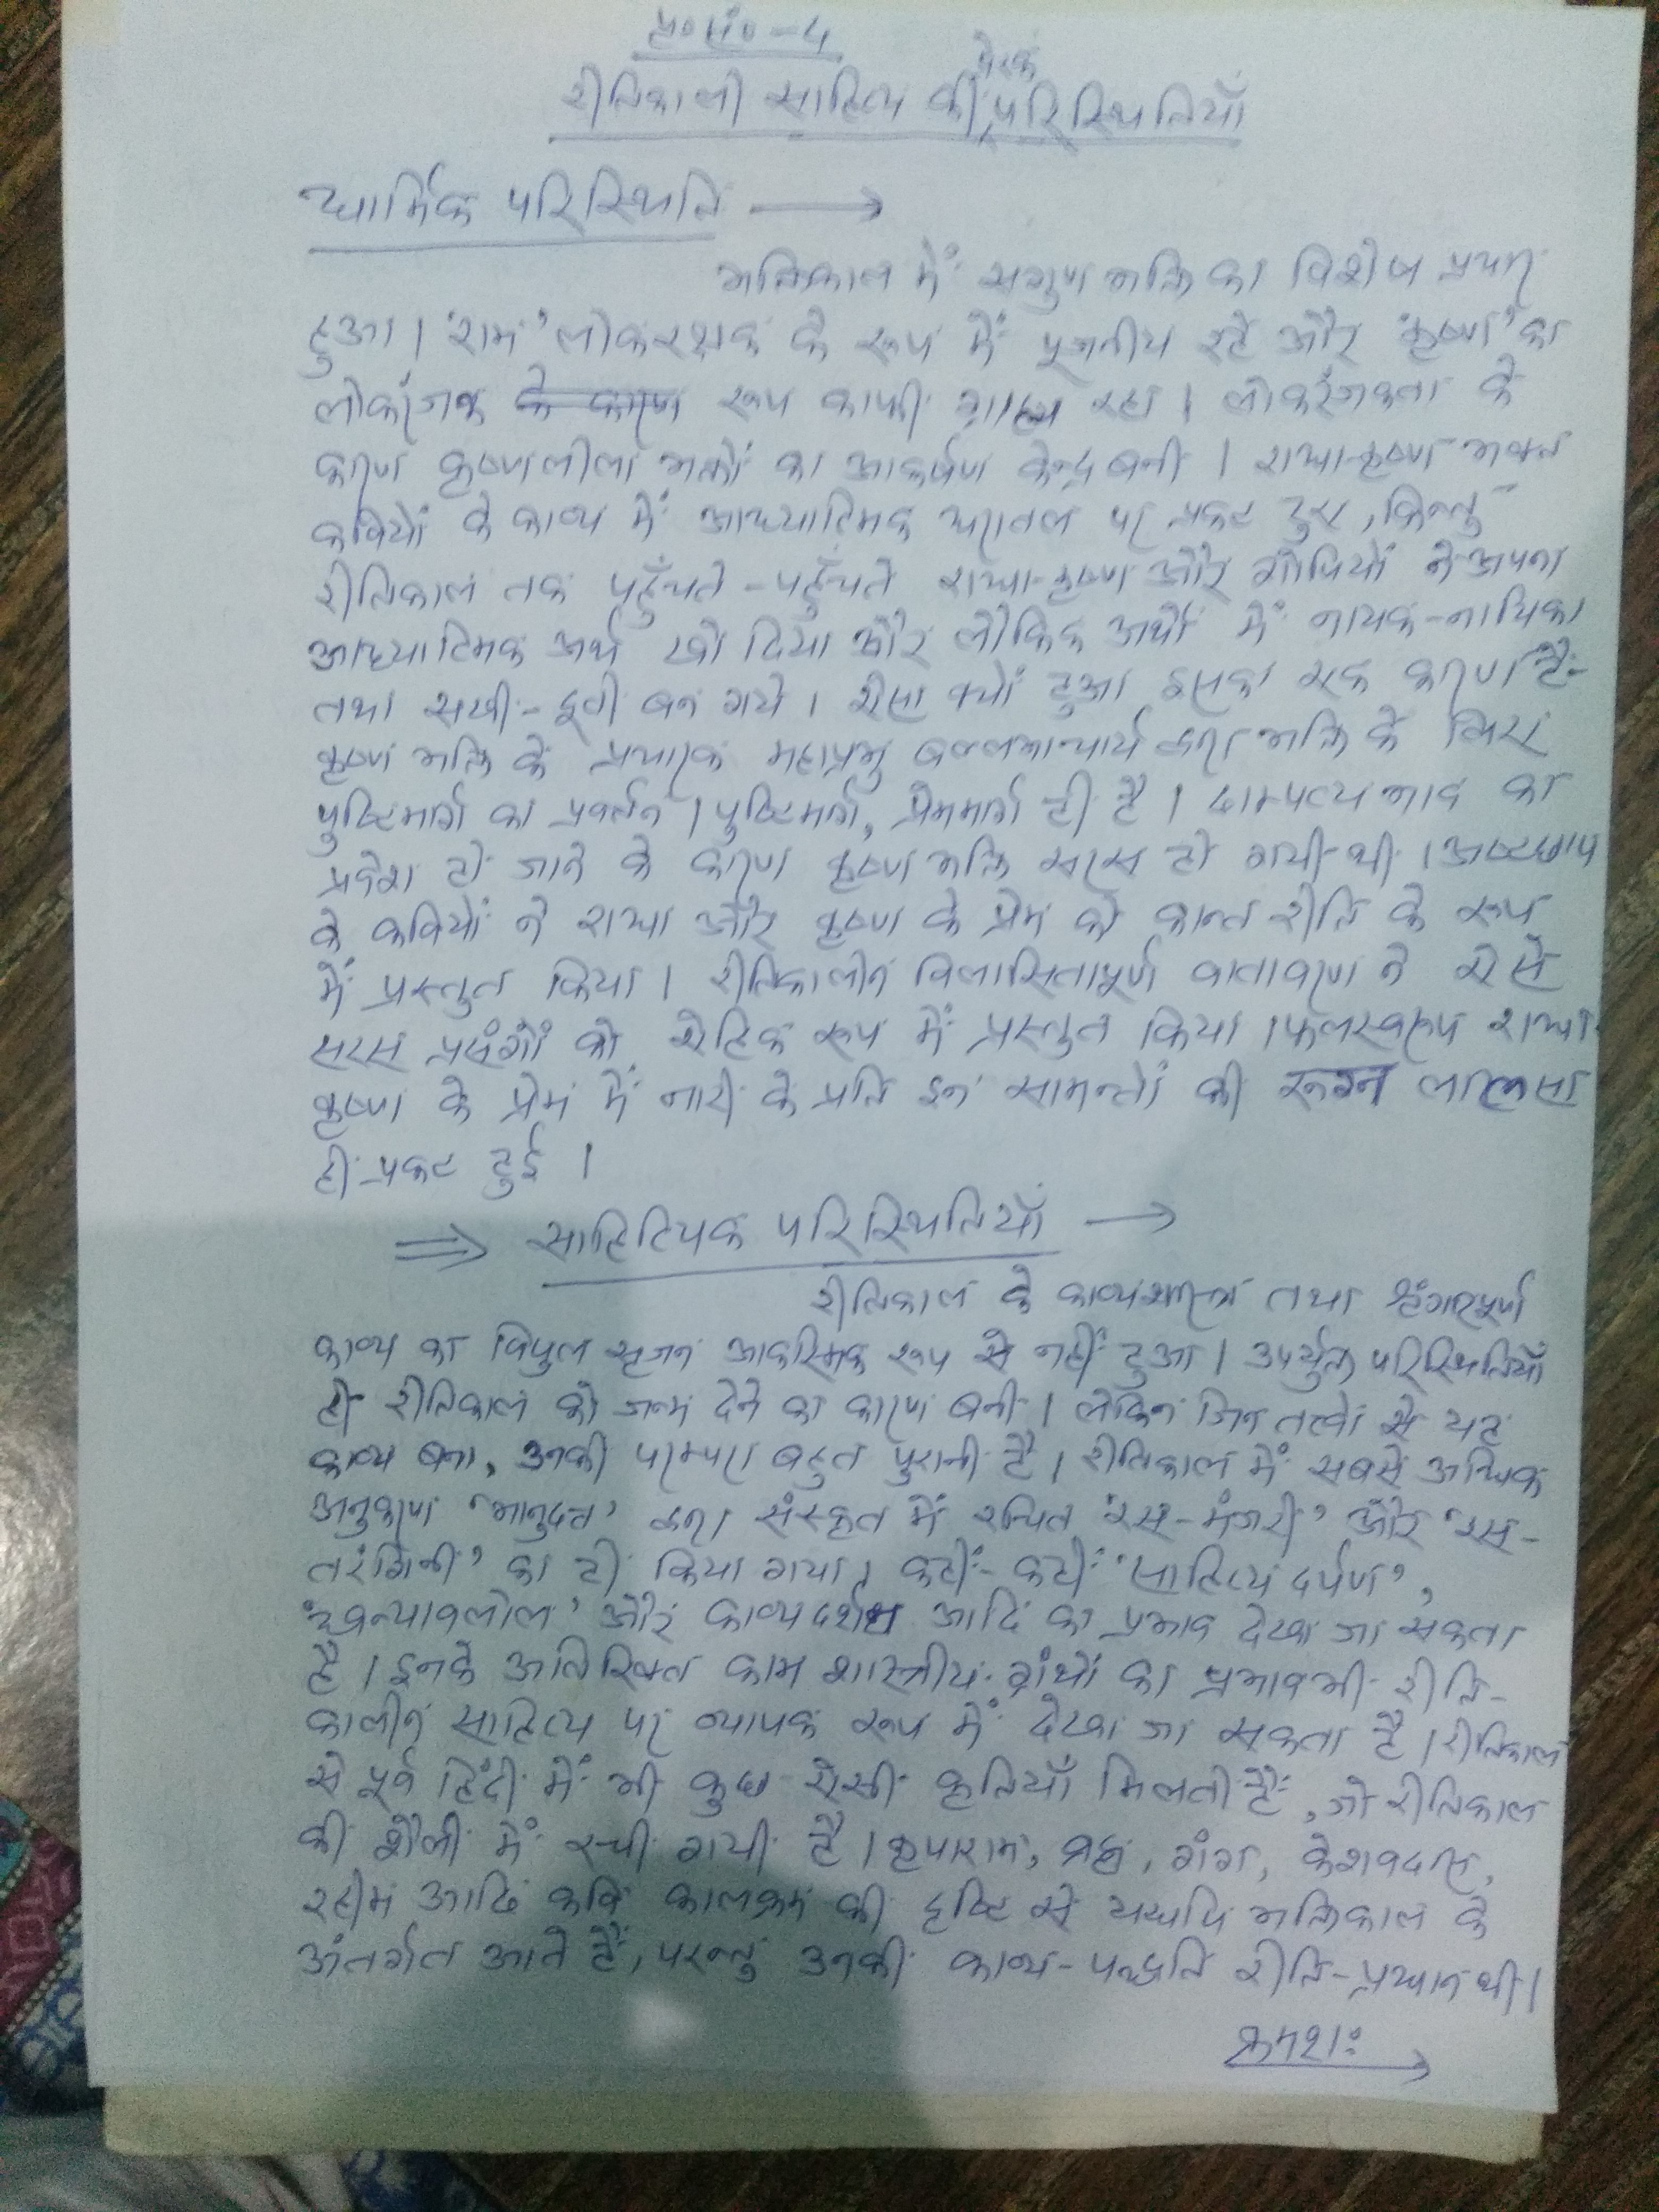 प्र०सं०-4
प्रेरक
रीतिकाली साहित्य की परिस्थितियाँ
धार्मिक परिस्थिति →
भक्तिकाल में सगुण भक्ति का विशेष प्रचार
हुआ। 'राम' लोकरक्षक के रूप में पूजनीय रहे और 'कृष्ण' का
लोकरंजक रूप काफी ग्राह्य रहा। लोकरंजकता के
कारण कृष्णलीला भक्तों का आकर्षण केन्द्र बनी। राधा-कृष्ण भक्त
कवियों के काव्य में आध्यात्मिक धरातल पर प्रकट हुए, किन्तु
रीतिकाल तक पहुँचते-पहुँचते राधा-कृष्ण और गोपियों ने अपना
आध्यात्मिक अर्थ खो दिया और लौकिक अर्थों में नायक-नायिका
तथा सखी-दूती बन गये। ऐसा क्यों हुआ इसका एक कारण है-
कृष्ण भक्ति के प्रचारक महाप्रभु बल्लभाचार्य द्वारा भक्ति के लिए
पुष्टिमार्ग का प्रवर्तन। पुष्टिमार्ग, प्रेममार्ग ही है। दाम्पत्य भाव का
प्रवेश हो जाने के कारण कृष्ण भक्ति सरस हो गयी थी। अष्टछाप
के कवियों ने राधा और कृष्ण के प्रेम को कान्त रीति के रूप
में प्रस्तुत किया। रीतिकालीन विलासितापूर्ण वातावरण ने ऐसे
सरस प्रसंगों को ऐहिक रूप में प्रस्तुत किया। फलस्वरूप राधा-
कृष्ण के प्रेम में नारी के प्रति इन सामन्तों की रूग्न लालसा
ही प्रकट हुई।
⇒ साहित्यिक परिस्थितियाँ →
रीतिकाल के काव्यशास्त्र तथा श्रृंगारपूर्ण
काव्य का विपुल सृजन आकस्मिक रूप से नहीं हुआ। उपर्युक्त परिस्थितियाँ
ही रीतिकाल को जन्म देने का कारण बनी। लेकिन जिन तत्वों से यह
काव्य बना, उनकी परम्परा बहुत पुरानी है। रीतिकाल में सबसे अधिक
अनुकरण 'भानुदत्त' द्वारा संस्कृत में रचित 'रस-मंजरी' और 'रस-
तरंगिनी' का ही किया गया। कहीं-कहीं 'साहित्य दर्पण',
'ध्वन्यावलोल' और काव्यदर्शन आदि का प्रभाव देखा जा सकता
है। इनके अतिरिक्त काम शास्त्रीय ग्रंथों का प्रभाव भी रीति-
कालीन साहित्य पर व्यापक रूप में देखा जा सकता है। रीतिकाल
से पूर्व हिंदी में भी कुछ ऐसी कृतियाँ मिलती हैं, जो रीतिकाल
की शैली में रची गयी है। कृपाराम, ब्रह्म, गंग, केशवदास,
रहीम आदि कवि कालक्रम की दृष्टि से यद्यपि भक्तिकाल के
अंतर्गत आते हैं, परन्तु उनकी काव्य-पद्धति रीति-प्रधान थी।
क्रमशः →